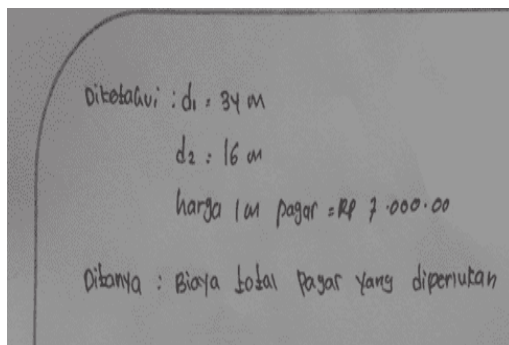 Diketahui : d1 = 34 m
d2 : 16 m
harga 1 m pagar = Rp 7.000.00
Ditanya : Biaya total pagar yang diperlukan